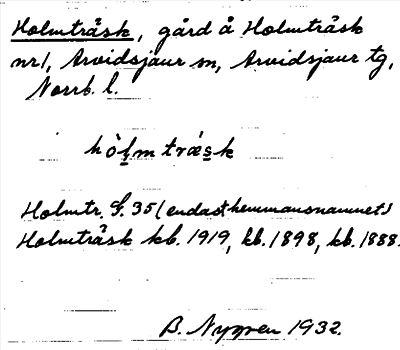 Holmträsk, gård å Holmträsk
nr 1, Arvidsjaur sn, Arvidsjaur tg,
Norrb. l.
hòlmtrǽsk
Holmtr. S. 35 (endast hemmansnamnet)
Holmträsk kb. 1919, kb. 1898, kb. 1888.
B. Nygren 1932.